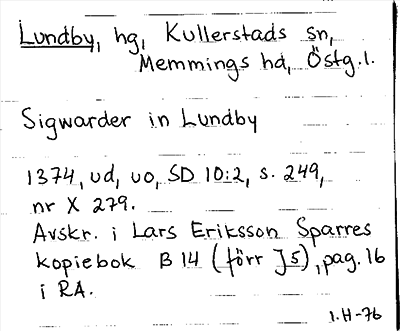 Lundby, hg, Kullerstads sn,
Memmings hd, Östg.l.
Sigwarder in Lundby
1374, ud, uo, SD 10:2, s. 249,
nr X 279.
Avskr. i Lars Eriksson Sparres
kopiebok B 14 (förr J5), pag. 16
i RA.
I.H-76